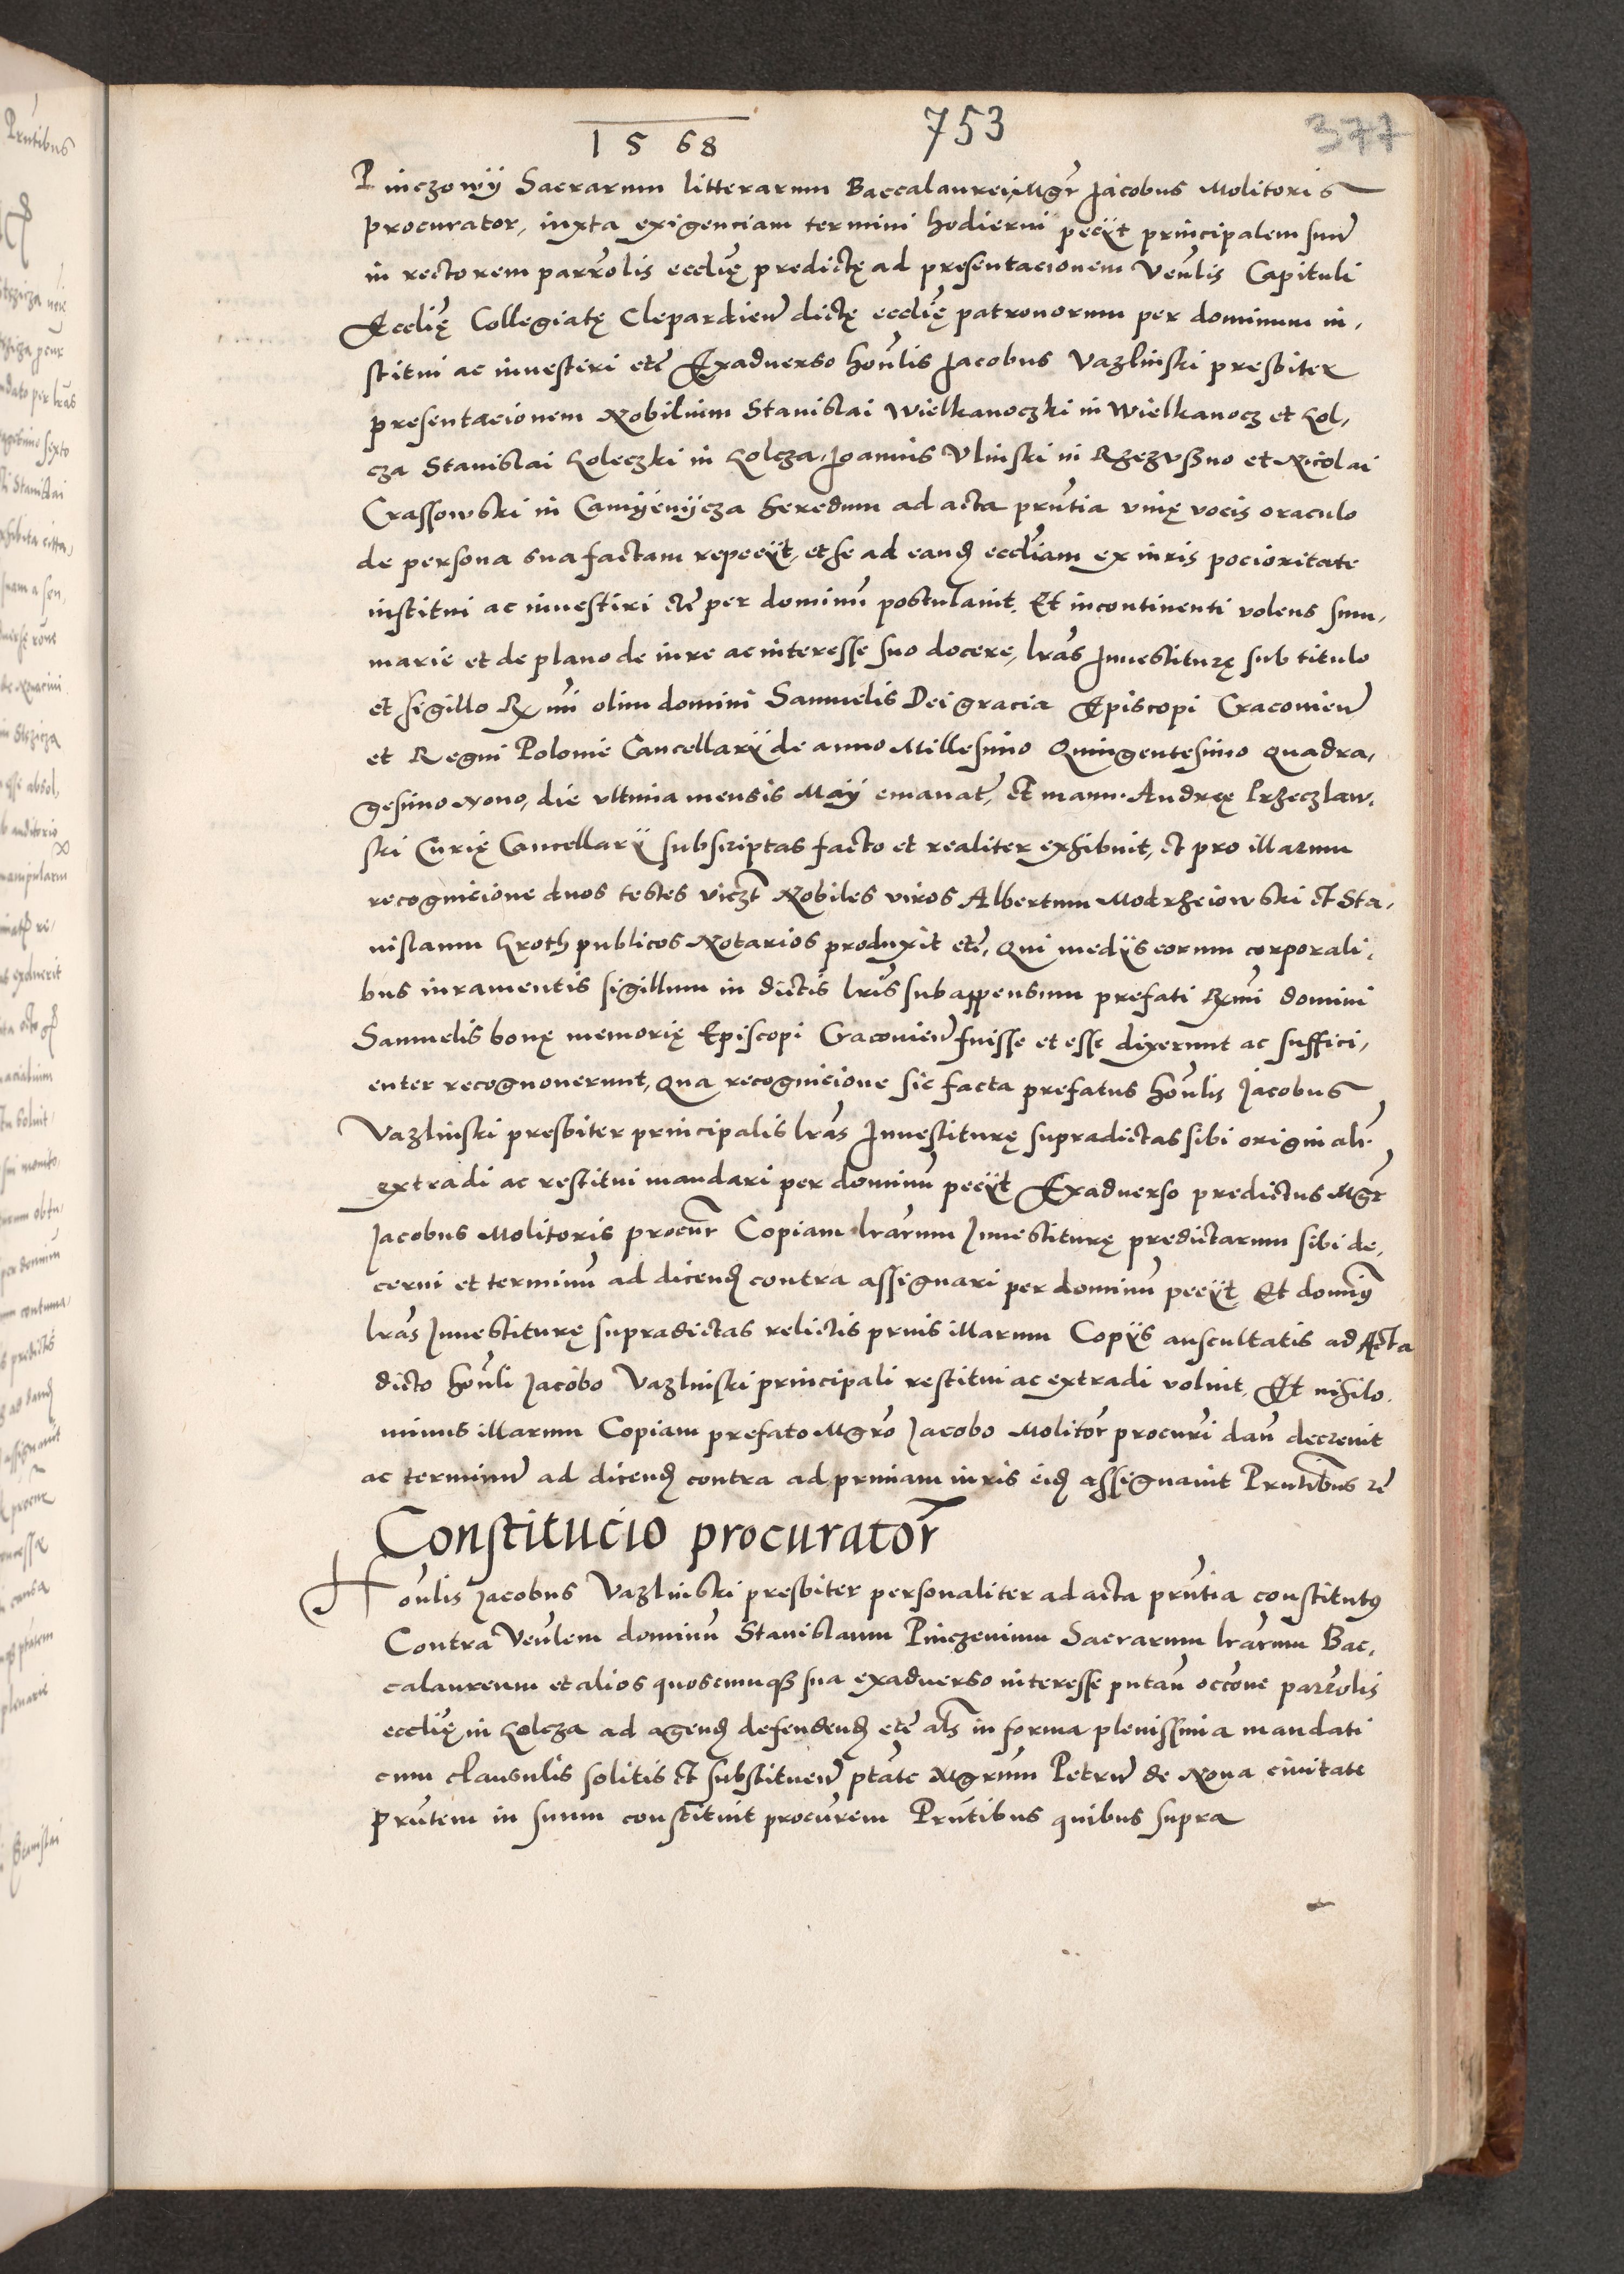 1568 753 377
Pinczowÿ Sacrarum litterarum Baccalaurei, Mgr̃ Jacobus Molitoris
procurator, iuxta exigenciam termini hodierni peciit principalem suũ
in rectorem parrõlis eccliẽ predictę ad presentacionem Veñlis Capituli
Eccliẽ Collegiatę Clepardieñ dictę eccliẽ patronorum per dominum in,
stitui ac inuestiri etc̃ Exaduerso hoñlis Jacobus Vazlinski presbiter
presentacionem Nobilium Stanislai Wielkanoczki in Wielkanocz et Kol,
cza Stanislai Koleczki in Kolcza, Joannis Vlinski in Rzezvsno et Nicolai
Crassowski in Camÿenÿcza heredum ad acta prñtia viuę vocis oraculo
de persona sua factam repeciit, et se ad eand̃ eccliam ex iuris pocioritate
institui ac inuestiri etc̃ per dominũ postulauit. Et incontinenti volens sum,
marie et de plano de iure ac interesse suo docere, lrãs Inuestiturę sub titulo
et sigillo Rx̃mi olim domini Samuelis Dei gracia Episcopi Cracouieñ
et Regni Polonie Cancellarÿ de anno Millesimo Quingentesimo Quadra,
gesimo Nono, die vltima mensis Maÿ emanat̃, et manu Andreę Przeczlaw,
ski Curię Cancellarÿ subscriptas facto et realiter exhibuit, et pro illarum
recognicione duos testes viczt̃ Nobiles viros Albertum Modrzeiowski et Sta,
nislaum Kroth publicos Notarios produxit etc̃, qui mediis eorum corporali,
bus iuramentis sigillum in dictis lrĩs subappensum prefati Rx̃mi domini
Samuelis bonę memorię Episcopi Cracouieñ fuisse et esse dixerunt ac suffici,
enter recognouerunt, qua recognicione sic facta prefatus hoñlis Jacobus
Vazlinski presbiter principalis lrãs Inuestiturę supradictas sibi originalr̃
extradi ac restitui mandari per dominũ peciit Exaduerso predictus Mgr̃
Jacobus Molitoris procur̃ Copiam lrãrum Inuestiturę predictarum sibi de,
cerni et terminũ ad dicend̃ contra assignari per dominũ peciit Et dominꝰ
lrãs Inuestiturę supradictas relictis prius illarum Copiis auscultatis ad Acta
dicto hoñli Jacobo Vazlinski principali restitui ac extradi voluit, Et nihilo,
minus illarum Copiam prefato Mgrõ Jacobo Molitor̃ procuri dañ decreuit
ac terminũ ad dicend̃ contra ad primam iuris eid̃ assignauit Prñtibus etc̃
Constitucio procurator̃
Hoñlis Jacobus Vazlinski presbiter personaliter ad acta prñtia constitutꝰ
Contra Veñlem dominũ Stanislaum Pinczouium Sacrarum lrãrum Bac,
calaureum et alios quoscunqꝫ sua exaduerso interesse putañ occõne parrõlis
eccliẽ in Kolcza ad agend̃ defendend̃ etc̃ als̃ in forma plenissima mandati
cum clausulis solitis et substitueñ ptãte Mgrũm Petrũ de Noua ciuitate
Prñtem in suum constituit procũrem Prñtibus quibus supra